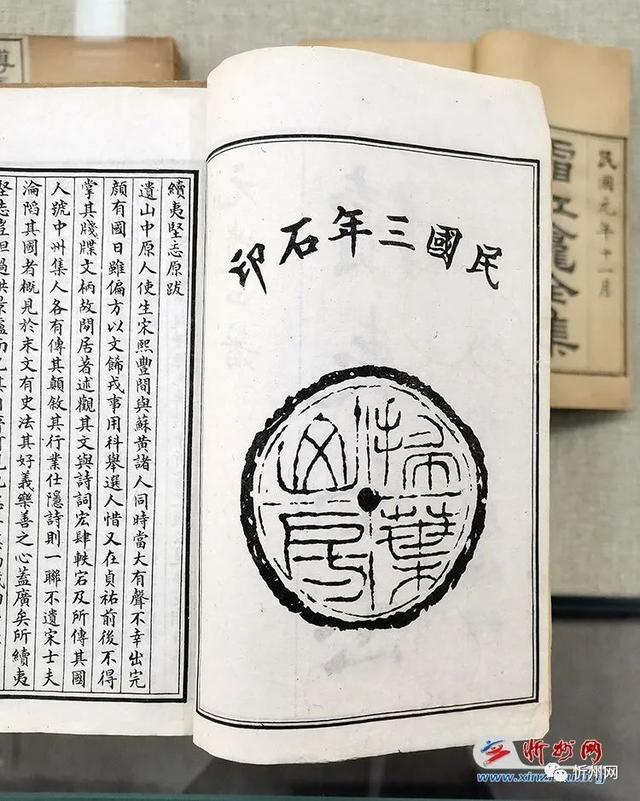 民國三年石印
掃葉
山房
續夷堅志原跋
遺山中原人使生宋熙豐間與蘇黃諸人同時當大有聲不幸出完
顏有國日雖偏方以文飾戎事用科舉選人惜又在貞祐前後不得
掌其牋牒文柄故閒居著述觀其文與詩詞宏肆軼宕及所傳其國
人號中州集人各有傳其顛敘其行業仕隱詩則一聯不遺宋士夫
淪陷其國者概見於末文有史法其好義樂善之心蓋廣矣所續夷
堅志豈但過洪景盧而已其自
民國元年十一月
霜紅龕全集
忻州网
忻州网